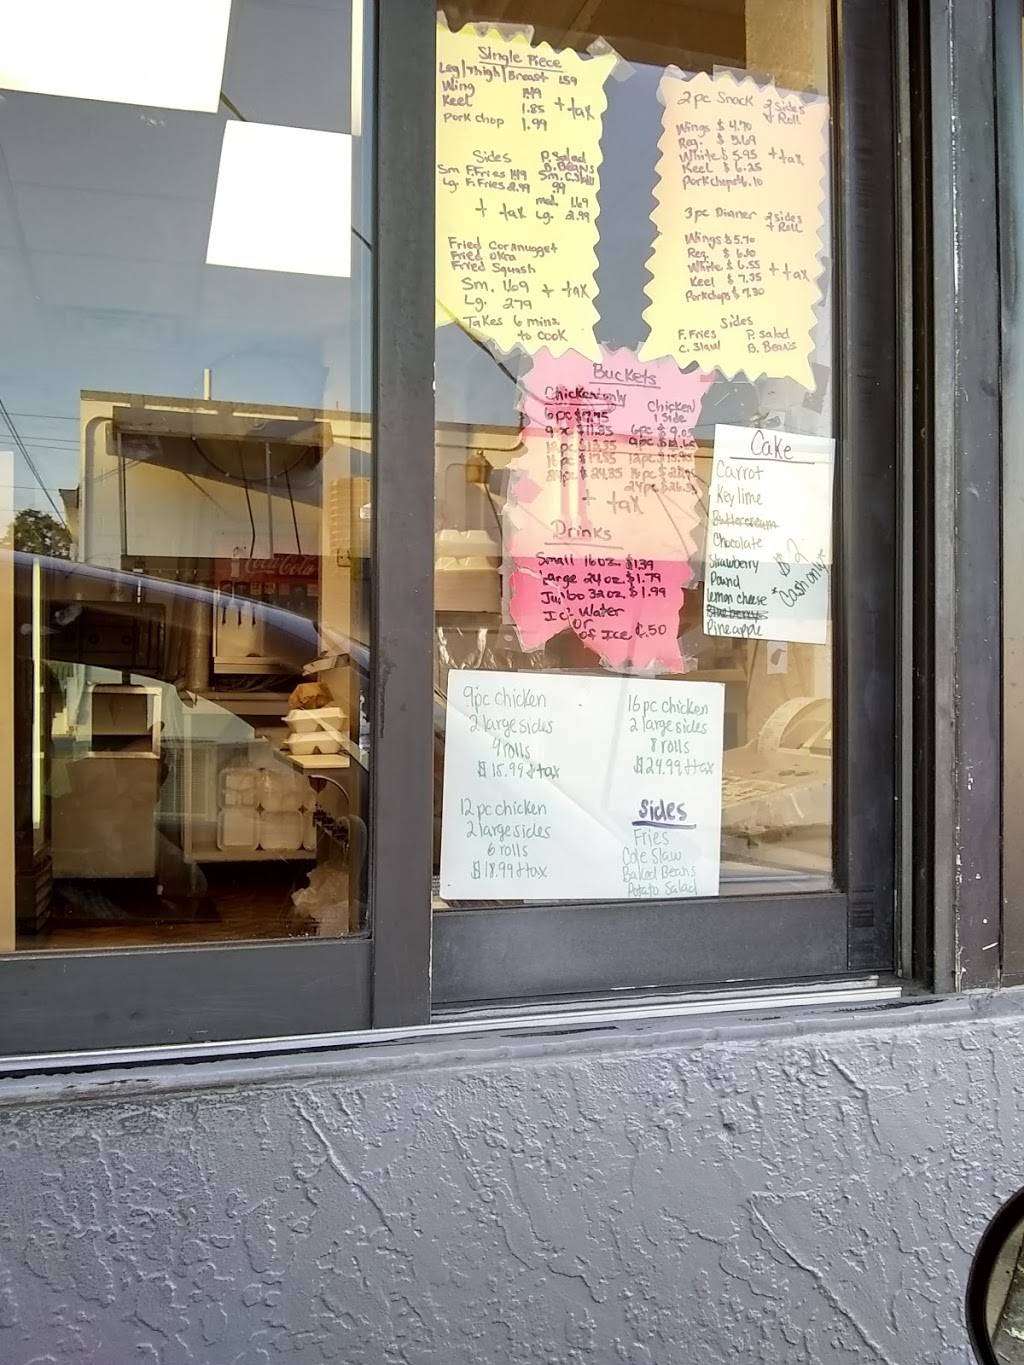 Single Piece
Leg/Thigh/Breast 1.59
Wing 1.49
Keel 1.85 + tax
Pork chop 1.99
Sides
P. Salad
B. Beans
Sm F.Fries 1.49 Sm. C. Slaw
Lg. F.Fries 2.99 .99
med. 1.69
+ tax Lg. 2.99
Fried Cornnugget
Fried okra
Fried Squash
Sm. 1.69 + tax
Lg. 2.79
Takes 6 mins
to cook
2 pc Snack 2 Sides
Roll
Wings $4.70
Reg. $5.69
White $5.95 + tax
Keel $6.25
Porkchops $6.10
3pc Dinner 2 sides
+ Roll
Wings $5.70
Reg. $6.10
White $6.55 + tax
Keel $7.35
Porkchops $7.30
Sides
F. Fries P. salad
C. Slaw B. Beans
Buckets
Chicken only
Chicken
1 Side
6pc $7.95 6pc $9.05
+ tax
Drinks
Small 16 oz. $1.39
Large 24 oz. $1.79
Jumbo 32 oz. $1.99
Ice Water
or
of Ice ¢.50
Coca-Cola
Cake
Carrot
Key lime
Buttercream
Chocolate
Strawberry
Pound
lemon cheese
Blueberry
Pineapple
$2
*Cash only*
9pc chicken
2 large sides
4 rolls
$15.99 + tax
16 pc chicken
2 large sides
8 rolls
$24.99 + tax
12 pc chicken
2 large sides
6 rolls
$18.99 + tax
Sides
Fries
Cole Slaw
Baked Beans
Potato Salad